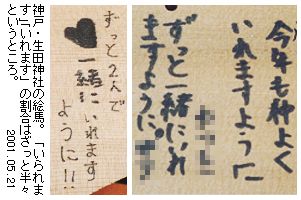 今年も仲よく
いれますように
ずっと一緒にいれ
ますように。
ずっと2人で
♥一緒にいれます
ように!!
神戸・生田神社の絵馬。「いられま
す」「いれます」の割合はざっと半々
というところ。 2001.05.21